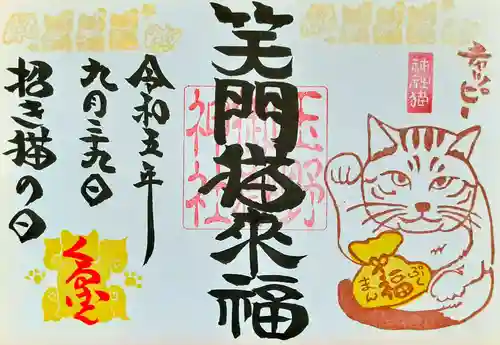 ハッピー
神社猫
笑門猫来福
玉野
神社
令和五年
九月二十九日
招き猫の日
福
まん
ぷく